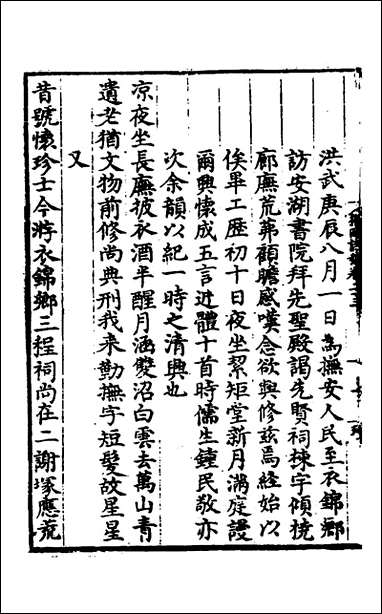 洪武庚辰八月一日為撫安人民至衣錦鄉
訪安湖書院拜先聖殿謁先賢祠棟宇傾撓
廊廡荒茀顧瞻感嘆念欲與修茲焉經始以
俟畢工歷初十日夜坐絜矩堂新月滿庭謾
爾興懷成五言近體十首時儒生鍾民敬亦
次余韻以紀一時之清興也
凉夜坐長廡披衣酒半醒月涵雙沼白雲去萬山青
遺老猶文物前修尚典刑我来勤撫字短髮故星星
又
昔號懐珍士今將衣錦鄉三程祠尚在二謝塚應荒